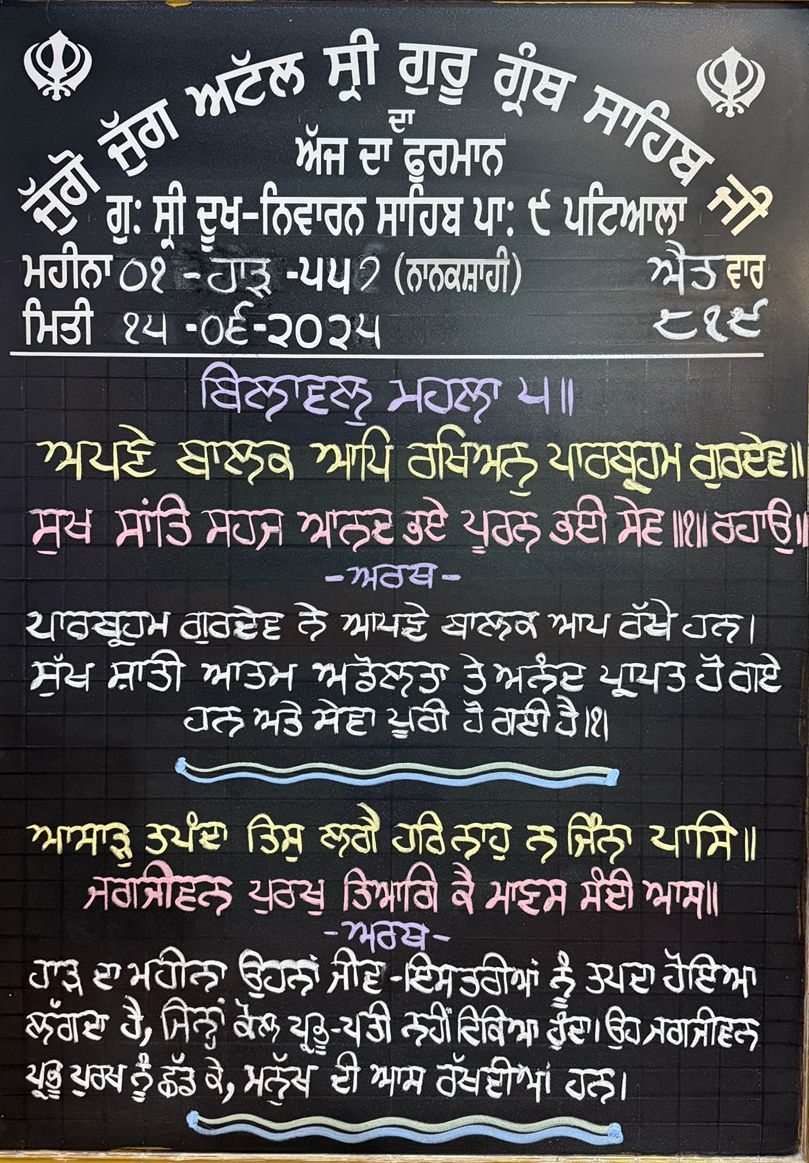 ਜੁੱਗੋ ਜੁੱਗ ਅਟੱਲ ਸ੍ਰੀ ਗੁਰੂ ਗ੍ਰੰਥ ਸਾਹਿਬ ਜੀ
ਦਾ
ਅੱਜ ਦਾ ਫੁਰਮਾਨ
ਗੁ: ਸ੍ਰੀ ਦੂਖ-ਨਿਵਾਰਨ ਸਾਹਿਬ ਪਾ: ੯ ਪਟਿਆਲਾ
ਮਹੀਨਾ ੦੧ -ਹਾੜ -੫੫੭ (ਨਾਨਕਸ਼ਾਹੀ) ਐਤ ਵਾਰ
ਮਿਤੀ ੧੫ -੦੬-੨੦੨੫ ੮੧੯
ਬਿਲਾਵਲੁ ਮਹਲਾ ੫॥
ਅਪਣੇ ਬਾਲਕ ਆਪਿ ਰਖਿਅਨੁ ਪਾਰਬ੍ਰਹਮ ਗੁਰਦੇਵ॥
ਸੁਖ ਸਾਂਤਿ ਸਹਜ ਆਨਦ ਭਏ ਪੂਰਨ ਭਈ ਸੇਵ॥੧॥ ਰਹਾਉ॥
-ਅਰਥ-
ਪਾਰਬ੍ਰਹਮ ਗੁਰਦੇਵ ਨੇ ਆਪਣੇ ਬਾਲਕ ਆਪ ਰੱਖੇ ਹਨ।
ਸੁੱਖ ਸ਼ਾਤੀ ਆਤਮ ਅਡੋਲਤਾ ਤੇ ਅਨੰਦ ਪ੍ਰਾਪਤ ਹੋ ਗਏ
ਹਨ ਅਤੇ ਸੇਵਾ ਪੂਰੀ ਹੋ ਗਈ ਹੈ।੧।
ਆਸਾੜੁ ਤਪੰਦਾ ਤਿਸੁ ਲਗੈ ਹਰਿ ਨਾਹੁ ਨ ਜਿੰਨਾ ਪਾਸਿ॥
ਜਗਜੀਵਨ ਪੁਰਖੁ ਤਿਆਗਿ ਕੈ ਮਾਣਸ ਸੰਦੀ ਆਸ॥
-ਅਰਥ-
ਹਾੜ ਦਾ ਮਹੀਨਾ ਉਹਨਾਂ ਜੀਵ-ਇਸਤਰੀਆਂ ਨੂੰ ਤਪਦਾ ਹੋਇਆ
ਲੱਗਦਾ ਹੈ, ਜਿਨ੍ਹਾਂ ਕੋਲ ਪ੍ਰਭੂ-ਪਤੀ ਨਹੀਂ ਟਿਕਿਆ ਹੁੰਦਾ। ਉਹ ਜਗਜੀਵਨ
ਪ੍ਰਭੂ ਪੁਰਖ ਨੂੰ ਛੱਡ ਕੇ, ਮਨੁੱਖ ਦੀ ਆਸ ਰੱਖਦੀਆਂ ਹਨ।